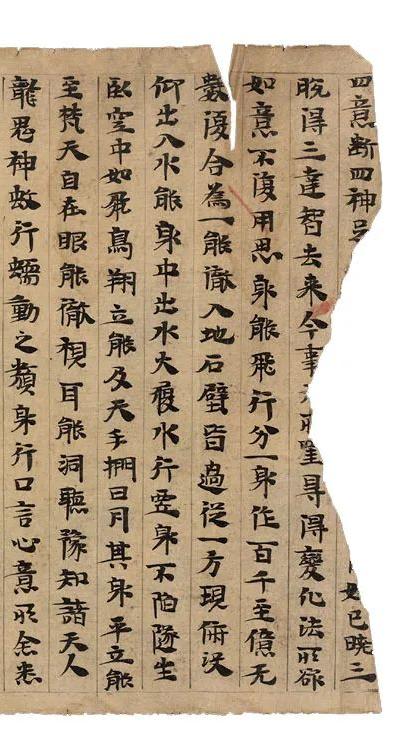 四意斷四神
得三達智去来今事所罣㝵得變化法所欲
如意不復用思身能飛行分一身作百千至億无
數復合為一能徹入地石壁皆過從一方現俯没
仰出入水能身中出水火履水行虛身不陷墜坐
卧空中如飛鳥翔立能及天手捫日月其身平立能
至梵天自在眼能徹視耳能洞聽豫知諸天人
龍鬼神蚑行蠕動之類身行口言心意所念悉
已曉三